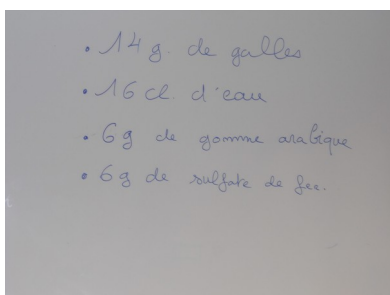 • 14 g. de galles
• 16 cl. d'eau
• 6 g de gomme arabique
• 6 g de sulfate de fer.